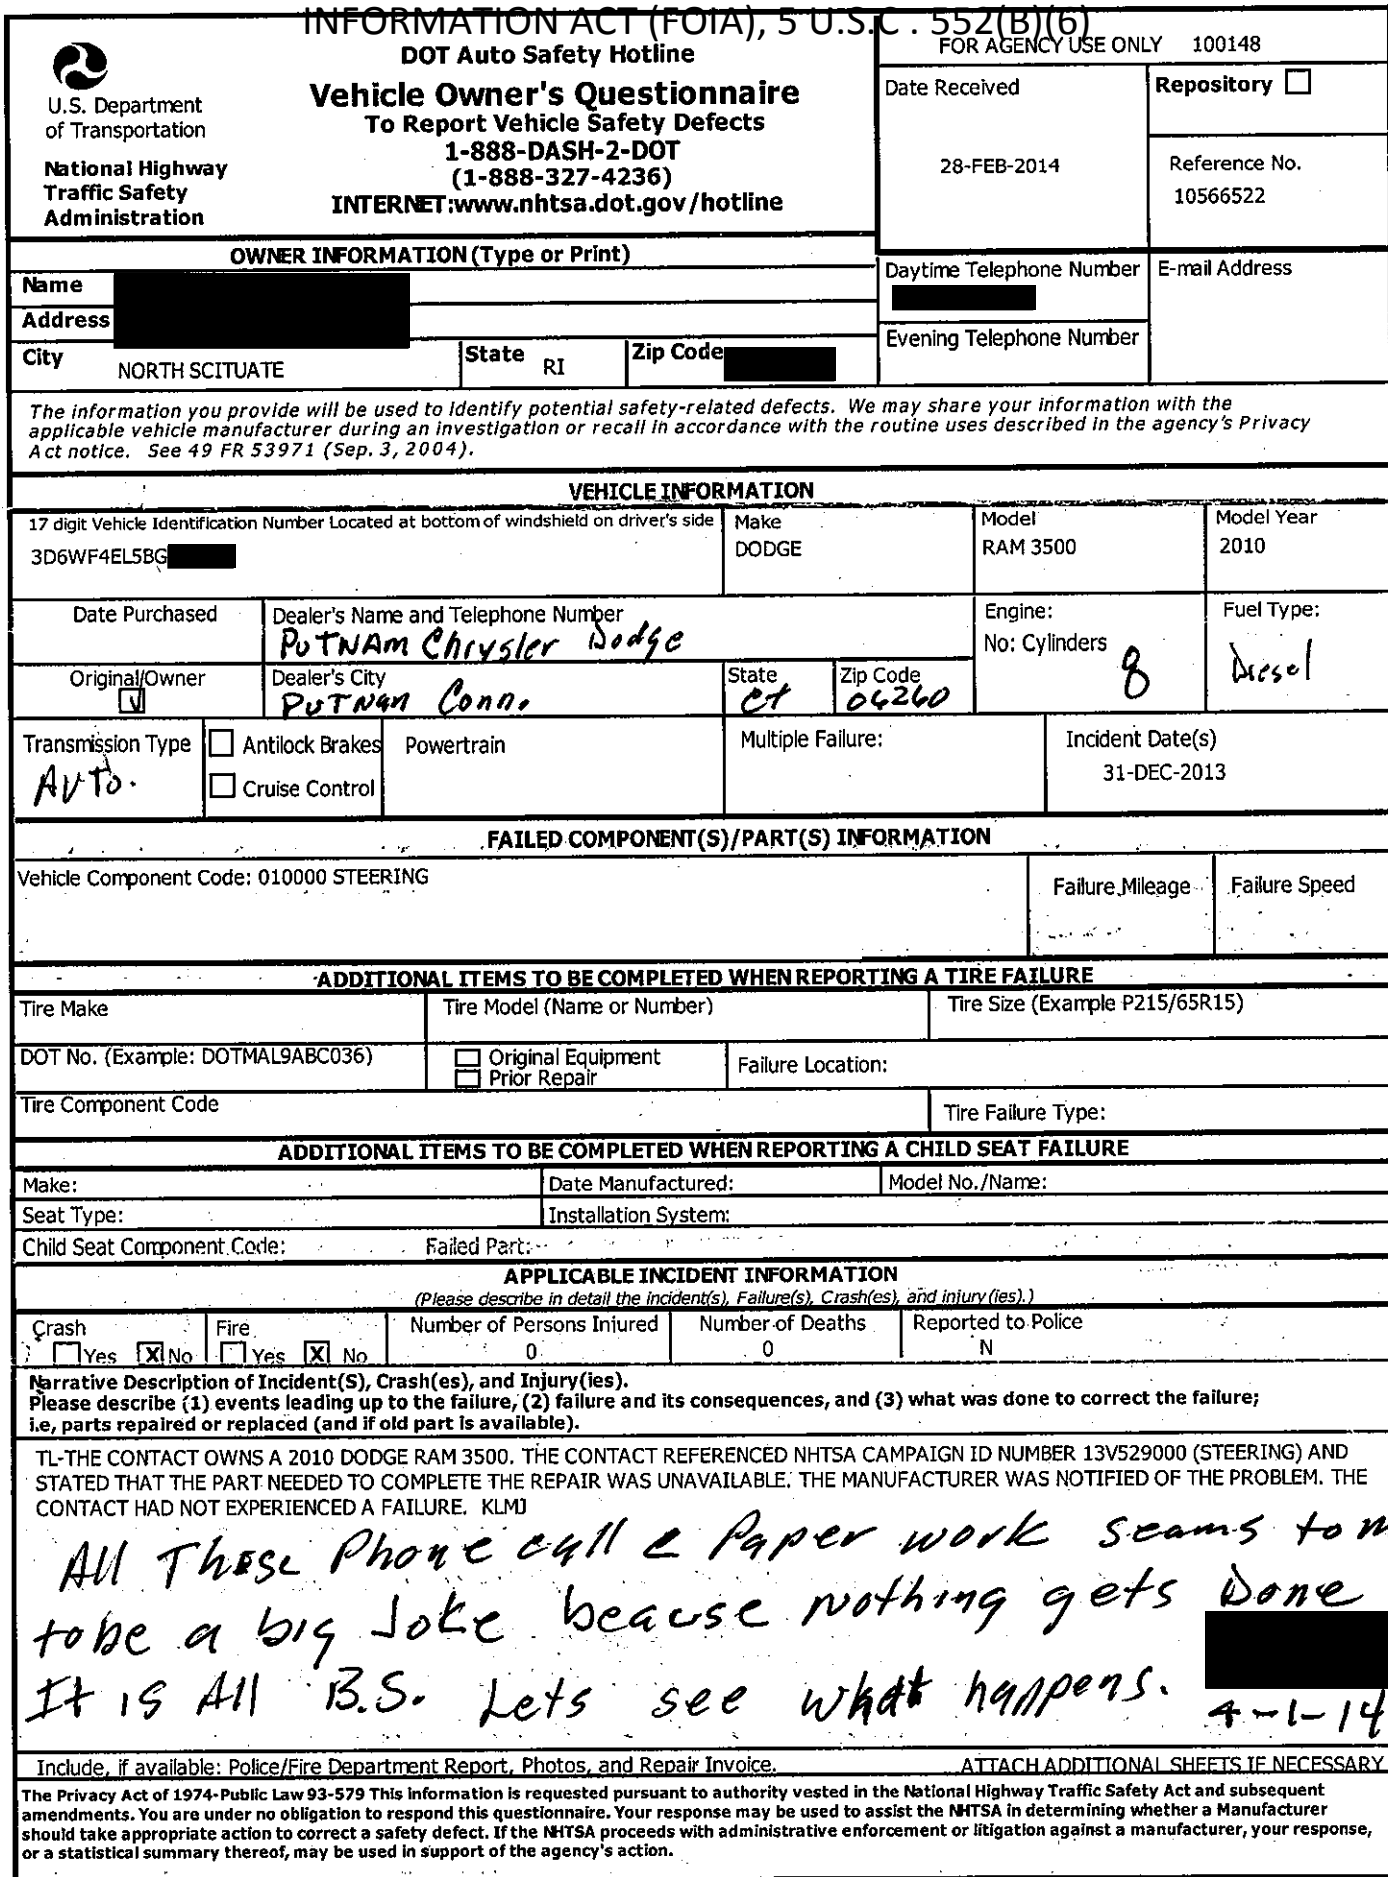 INFORMATION ACT (FOIA), 5 U.S.C . 552(B)(6)
U.S. Department
of Transportation
National Highway
Traffic Safety
Administration
DOT Auto Safety Hotline
Vehicle Owner's Questionnaire
To Report Vehicle Safety Defects
1-888-DASH-2-DOT
(1-888-327-4236)
INTERNET:www.nhtsa.dot.gov/hotline
FOR AGENCY USE ONLY 100148
Date Received
28-FEB-2014
Repository
Reference No.
10566522
OWNER INFORMATION (Type or Print)
Name
Address
City NORTH SCITUATE State RI Zip Code
Daytime Telephone Number
E-mail Address
Evening Telephone Number
The information you provide will be used to identify potential safety-related defects. We may share your information with the
applicable vehicle manufacturer during an investigation or recall in accordance with the routine uses described in the agency's Privacy
Act notice. See 49 FR 53971 (Sep. 3, 2004).
VEHICLE INFORMATION
17 digit Vehicle Identification Number Located at bottom of windshield on driver's side
3D6WF4EL5BG
Make
DODGE
Model
RAM 3500
Model Year
2010
Date Purchased
Dealer's Name and Telephone Number
PUTNAM Chrysler Dodge
Engine:
No: Cylinders 8
Fuel Type:
Diesel
Original/Owner
Dealer's City
PUTNan Conn.
State
Ct
Zip Code
06260
Transmission Type
AUTO.
Antilock Brakes
Cruise Control
Powertrain
Multiple Failure:
Incident Date(s)
31-DEC-2013
FAILED COMPONENT(S)/PART(S) INFORMATION
Vehicle Component Code: 010000 STEERING
Failure Mileage
Failure Speed
ADDITIONAL ITEMS TO BE COMPLETED WHEN REPORTING A TIRE FAILURE
Tire Make
Tire Model (Name or Number)
Tire Size (Example P215/65R15)
DOT No. (Example: DOTMAL9ABC036)
Original Equipment
Prior Repair
Failure Location:
Tire Component Code
Tire Failure Type:
ADDITIONAL ITEMS TO BE COMPLETED WHEN REPORTING A CHILD SEAT FAILURE
Make:
Date Manufactured:
Model No./Name:
Seat Type:
Installation System:
Child Seat Component Code:
Failed Part:
APPLICABLE INCIDENT INFORMATION
(Please describe in detail the incident(s), Failure(s), Crash(es), and injury(ies).)
Crash
Yes X No
Fire
Yes X No
Number of Persons Injured
0
Number of Deaths
0
Reported to Police
N
Narrative Description of Incident(S), Crash(es), and Injury(ies).
Please describe (1) events leading up to the failure, (2) failure and its consequences, and (3) what was done to correct the failure;
i.e, parts repaired or replaced (and if old part is available).
TL-THE CONTACT OWNS A 2010 DODGE RAM 3500. THE CONTACT REFERENCED NHTSA CAMPAIGN ID NUMBER 13V529000 (STEERING) AND
STATED THAT THE PART NEEDED TO COMPLETE THE REPAIR WAS UNAVAILABLE. THE MANUFACTURER WAS NOTIFIED OF THE PROBLEM. THE
CONTACT HAD NOT EXPERIENCED A FAILURE. KLMJ
All These Phone call & Paper work seams to m
to be a big Joke beacuse nothing gets Done
It is All B.S. Lets see what happens.
4-1-14
Include, if available: Police/Fire Department Report, Photos, and Repair Invoice. ATTACH ADDITIONAL SHEETS IF NECESSARY
The Privacy Act of 1974-Public Law 93-579 This information is requested pursuant to authority vested in the National Highway Traffic Safety Act and subsequent
amendments. You are under no obligation to respond this questionnaire. Your response may be used to assist the NHTSA in determining whether a Manufacturer
should take appropriate action to correct a safety defect. If the NHTSA proceeds with administrative enforcement or litigation against a manufacturer, your response,
or a statistical summary thereof, may be used in support of the agency's action.